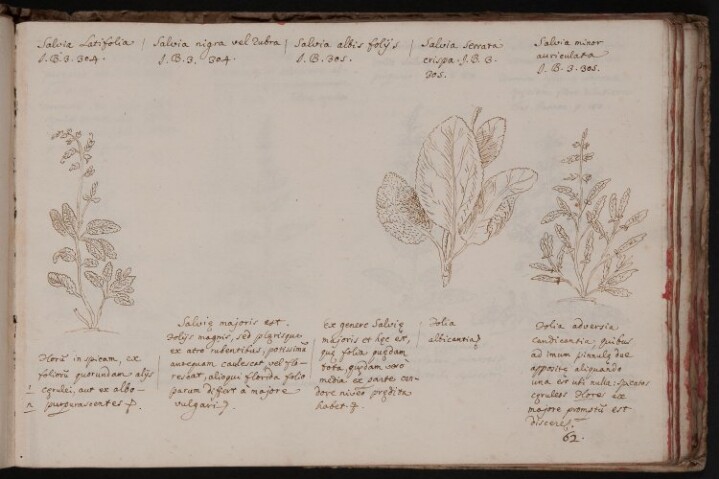 Salvia Latifolia
J. B. 3. 304.
Salvia nigra vel dubra
J. B. 3. 304.
Salvia albis folijs
J. B. 305.
Salvia serrata
crispa. J. B. 3.
305.
Salvia minor
auriculata
J. B. 3. 305.
in spicam, ex
folliculis quorundam alijs
cęrulei, aut ex albo
purpurascentes
Salvię majoris est.
folijs magnis, sed plęrisque
ex atro rubentibus, potissimū
antequam caulescat vel flo-
rescat, alioqui florida folio
parum differt à majore
vulgari
Ex genere Salvię
majoris et hęc est,
quę folia quędam
tota, quędam vero
media ex parte can-
dore niveo prędita
habet
Folia
albicantia
Folia adversa
candicantia, quibus
ad imum pinnulę duę
appositę aliquando
una est uti nulla
cęruleos Flores ex
majore promptū est
discere
62.